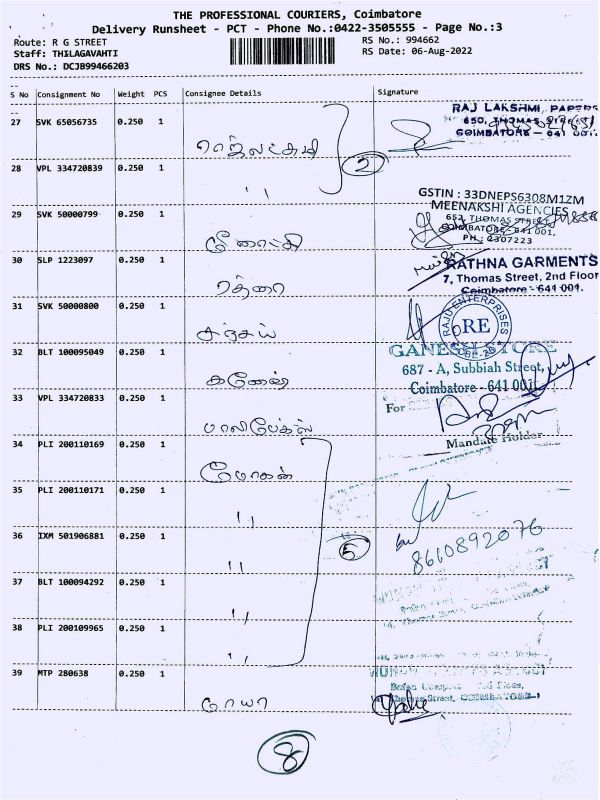 THE PROFESSIONAL COURIERS, Coimbatore
Delivery Runsheet - PCT - Phone No.:0422-3505555 - Page No.:3
Route: R G STREET
RS No.: 994662
Staff: THILAGAVAHTI
RS Date: 06-Aug-2022
DRS No.: DCJB99466203
S No Consignment No Weight PCS Consignee Details Signature
27 SVK 65056735 0.250 1
RAJ LAKSHMI PAPERS
650, THOMAS STREET
COIMBATORE - 641 001.
ராஜலட்சுமி
2
28 VPL 334720839 0.250 1
"
GSTIN : 33DNEPS6308M1ZM
MEENAKSHI AGENCIES
652, THOMAS STREET
COIMBATORE - 641 001.
PH : 4307223
29 SVK 50000799 0.250 1
மீனாட்சி
30 SLP 1223097 0.250 1
RATHNA GARMENTS
7, Thomas Street, 2nd Floor
Coimbatore - 641 001.
ரத்னா
31 SVK 50000800 0.250 1
RAJU ENTERPRISES
RE
CBE-20
32 BLT 100095049 0.250 1
GANESH STORE
687 - A, Subbiah Street,
Coimbatore - 641 001.
கணேஷ்
33 VPL 334720833 0.250 1
For
Mandate Holder
பாலிபேக்ஸ்
34 PLI 200110169 0.250 1
மோகன்
35 PLI 200110171 0.250 1
"
36 IXM 501906881 0.250 1
5
8610892076
"
37 BLT 100094292 0.250 1
"
38 PLI 200109965 0.250 1
"
39 MTP 280638 0.250 1
Thomas Street, COIMBATORE
8